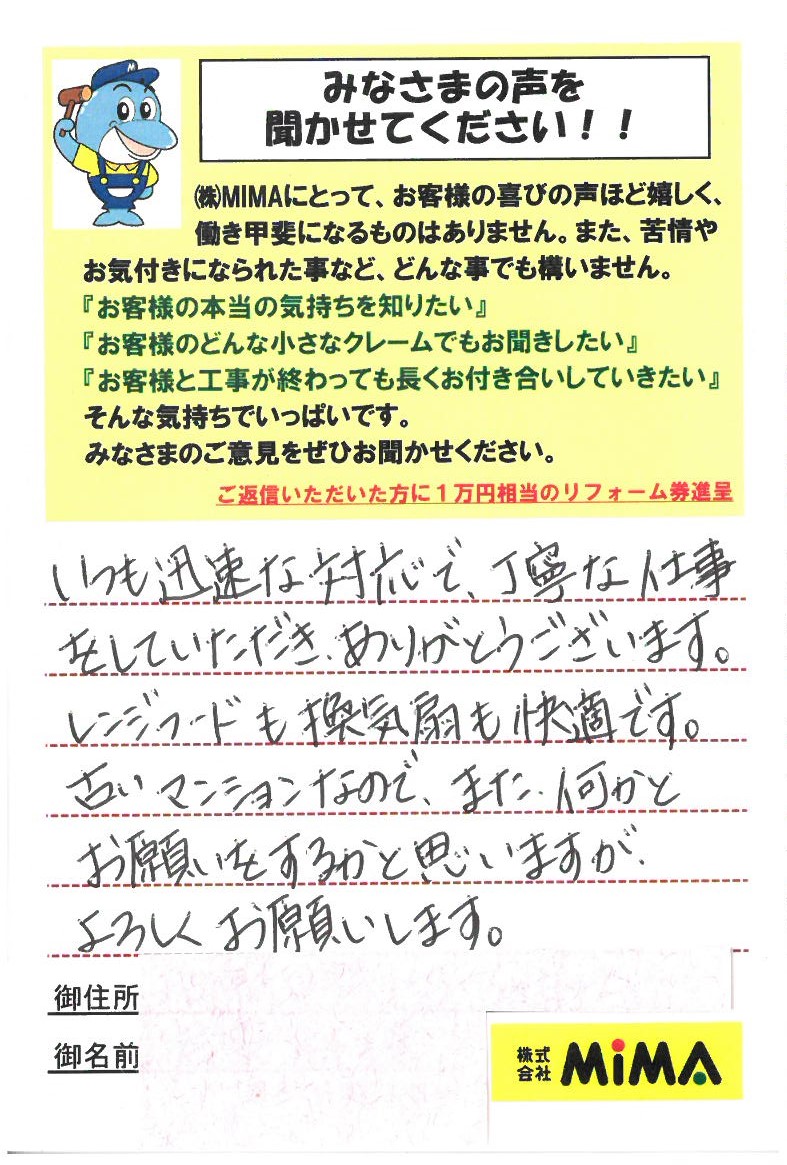 みなさまの声を
聞かせてください！！
㈱MIMAにとって、お客様の喜びの声ほど嬉しく、
働き甲斐になるものはありません。また、苦情や
お気付きになられた事など、どんな事でも構いません。
『お客様の本当の気持ちを知りたい』
『お客様のどんな小さなクレームでもお聞きしたい』
『お客様と工事が終わっても長くお付き合いしていきたい』
そんな気持ちでいっぱいです。
みなさまのご意見をぜひお聞かせください。
ご返信いただいた方に１万円相当のリフォーム券進呈
いつも迅速な対応で、丁寧な仕事
をしていただき、ありがとうございます。
レンジフードも換気扇も快適です。
古いマンションなので、また、何かと
お願いをするかと思いますが、
よろしくお願いします。
御住所
御名前
株式会社 MiMA